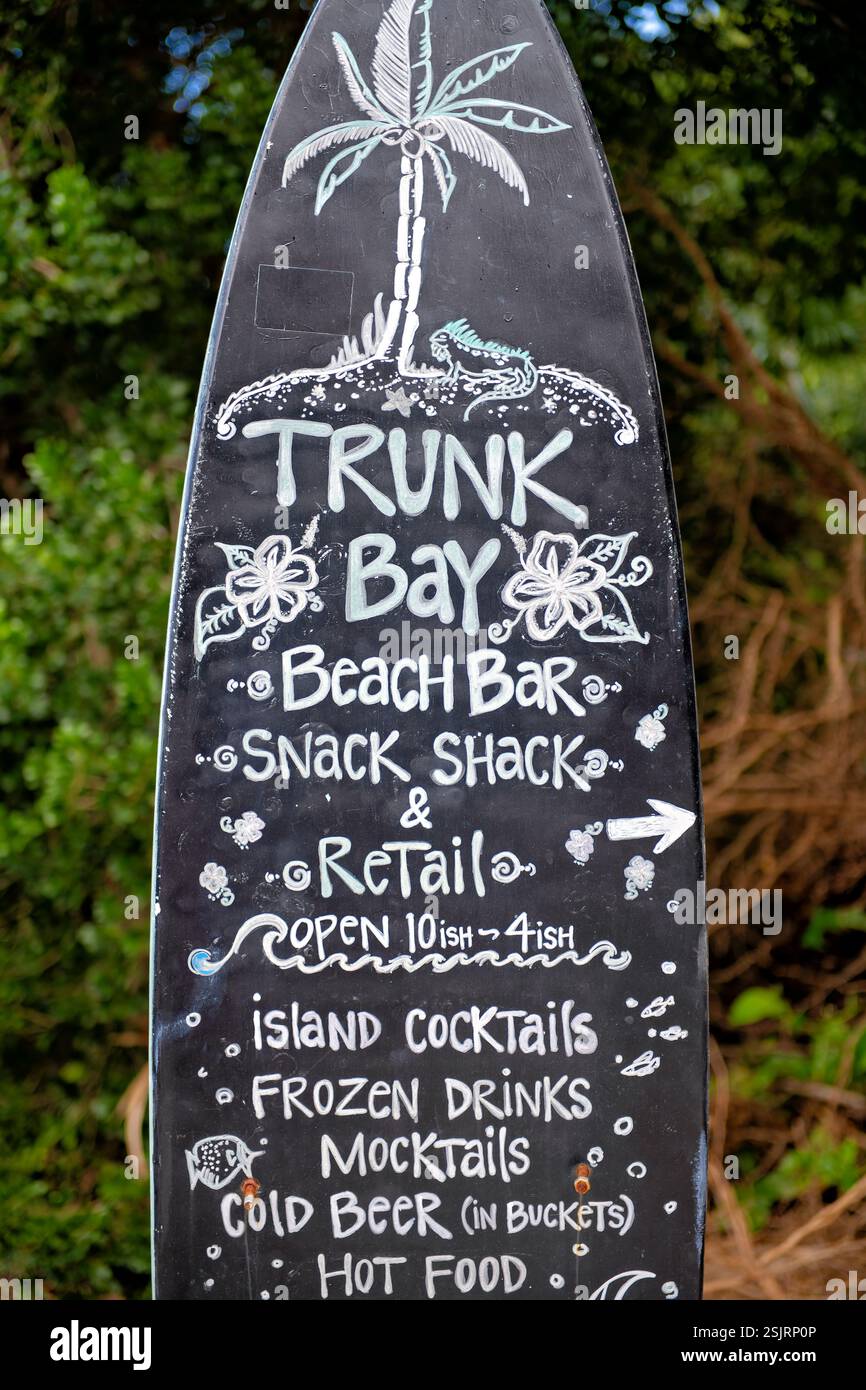 TRUNK
BAY
BEACH BAR
SNACK SHACK
&
RETAIL
OPEN 10ISH - 4ISH
ISLAND COCKTAILS
FROZEN DRINKS
MOCKTAILS
COLD BEER (IN BUCKETS)
HOT FOOD
alamy
Image ID: 2SJRP0P
www.alamy.com